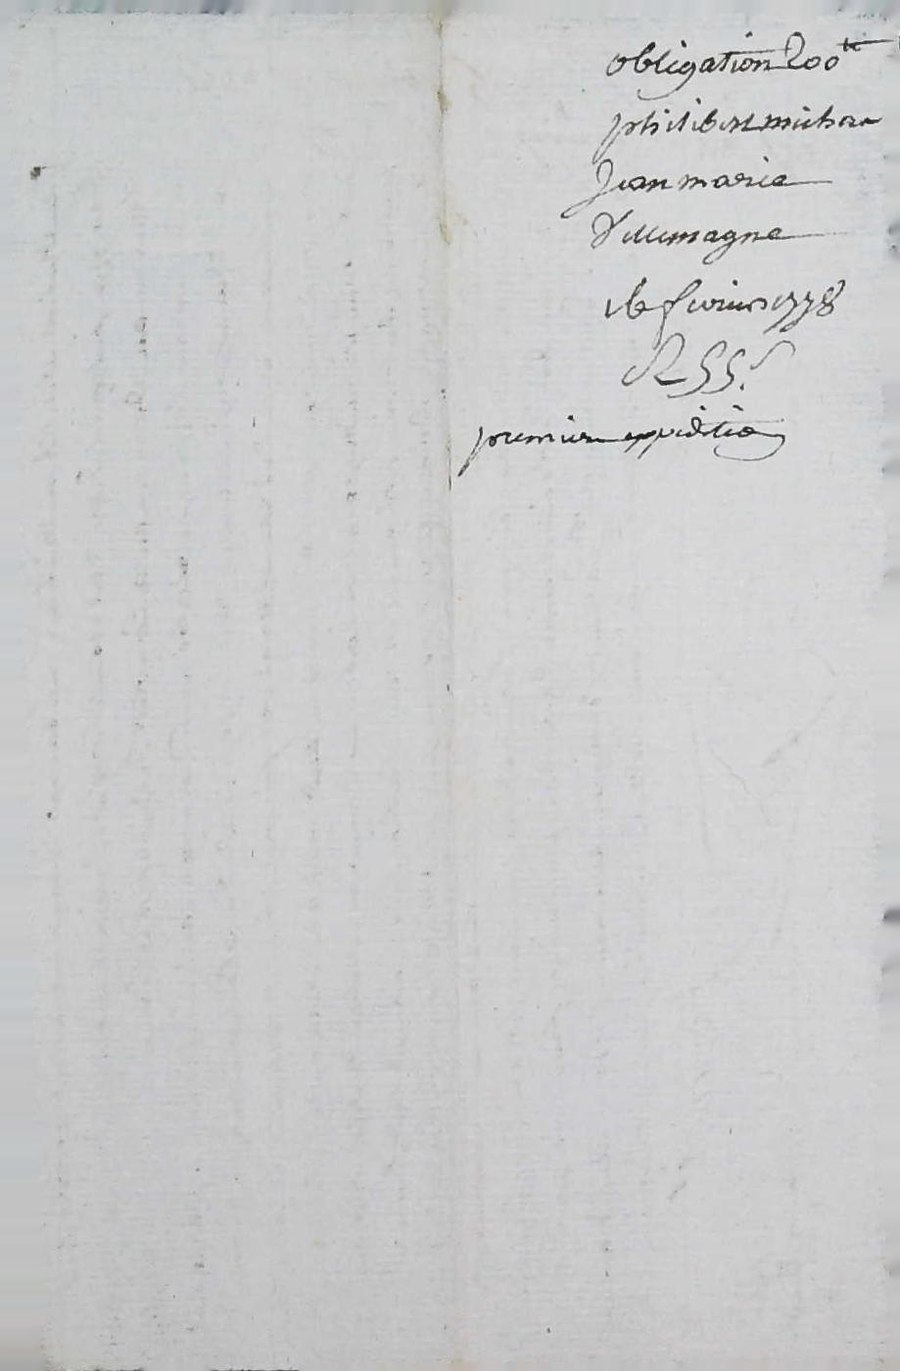 obligation 200ᵗᵗ
philibert michon
Jean marie
Dallemagne
16 fevrier 1778
R
premiere expedition